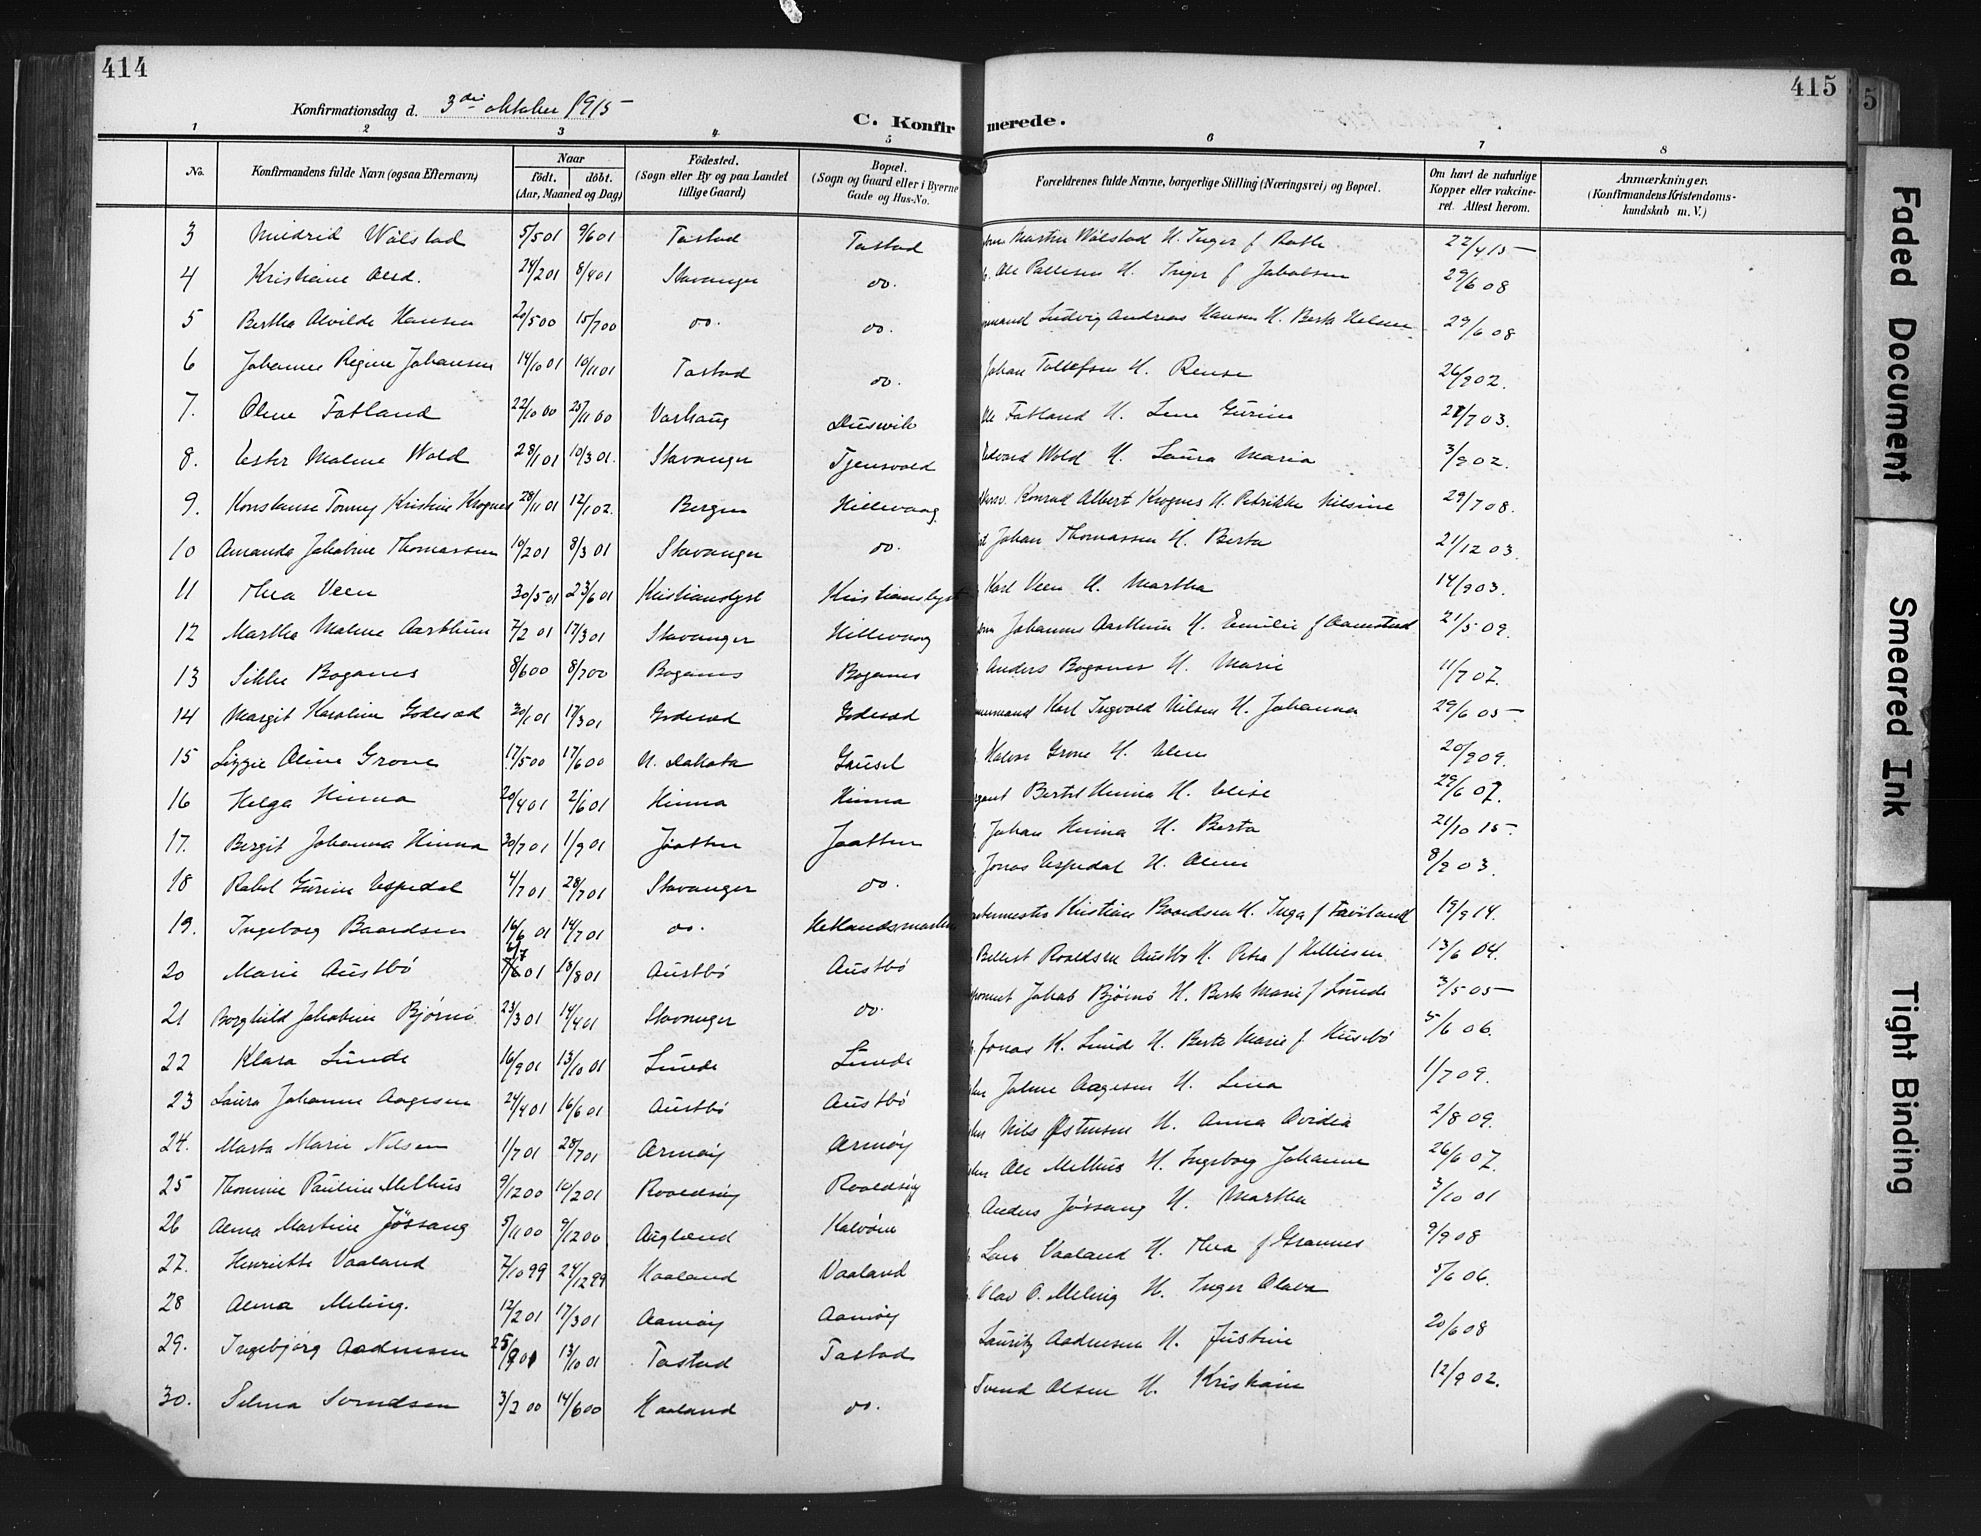 414
415
5
Konfirmationsdag d. 3die oktober 1915
C. Konfirmerede.
1 2 3 4 5 6 7 8
No. Konfirmandens fulde Navn (ogsaa Efternavn) Naar födt. döbt. (Aar, Maaned og Dag) Födested. (Sogn eller By og paa Landet tillige Gaard) Bopæl. (Sogn og Gaard eller i Byerne Gade og Hus-No. Forældrenes fulde Navne, borgerlige Stilling (Næringsvei) og Bopæl. Om havt de naturlige Kopper eller vakcineret. Attest herom. Anmærkninger. (Konfirmandens Kristendomskundskab m. V.)
3 Mildrid Wålstad 5/5 01 9/6 01 Tastad Tastad Martin Wålstad H. Inger f 22/4 15
4 Kristiane 24/2 01 8/4 01 Stavanger do. Ole H. Inger f Jakobsen 29/6 08
5 Bertha Alvilde Hansen 20/5 00 15/7 00 do. do. Ludvig Andreas Hansen H. Berta Helene 29/6 08
6 Johanne Regine Johansen 14/10 01 10/11 01 Tastad do. Johan Tollefsen H. 26/9 02.
7. Oline Fatland 22/10 00 25/11 00 Varhaug Dusevik Ole Fatland H. Lene Gurine 28/7 03.
8. Ester Malene Wold 28/1 01 10/3 01. Stavanger Tjensvold Edvard Wold H. Laura Maria 3/9 02.
9. Konstanse Tonny Kristine Krognes 28/11 01 12/1 02. Bergen Hillevaag Konrad Albert Krognes H. Petrikke Nilsine 29/7 08.
10 Amanda Jakobine Thomassen 10/2 01 8/3 01 Stavanger do. Johan Thomassen H. Berta 21/12 03.
11 Thea Veen 30/5 01 23/6 01 Kristianslyst Kristianslyst Karl Veen H. Martha 14/9 03.
12 Martha Malene Aarthun 7/2 01 17/3 01 Stavanger Hillevaag Johannes Aarthun H. Emilie f Aamstad 21/5 09.
13 Sikke Boganes 8/6 00 8/7 00 Boganes Boganes Anders Boganes H. Marie 11/7 07.
14 Margit Karoline Godesæd 30/1 01 17/3 01 Godesæd Godesæd Karl Ingvald Nilsen H. Johanna 29/6 05
15 Lizzie Oline Grove 17/5 00 17/6 00 N. Dakota Gausel Halvor Grove H. Elen 20/9 09.
16 Helga Hinna 20/4 01 2/6 01 Hinna Hinna Bertel Hinna H. Elise 29/6 07.
17. Bergit Johanna Hinna 30/7 01 1/9 01 Jåatten Jaatten Johan Hinna H. Berta 21/10 15.
18 Rakel Gurine Espedal 4/7 01 28/7 01 Stavanger do. Jonas Espedal H. Oline 8/9 03.
19. Ingeborg Baardsen 16/6 01 14/7 01 do. Hetlandsmarken Kristian Baardsen H. Inga f Fröiland 19/9 14.
20 Marie Austbö 6/7 01 18/8 01 Austbö Austbö Roaldsen Austbö H. Petra f Helliesen 13/6 04.
21 Borghild Jakobine Bjørnö 23/3 01 14/4 01 Stavanger do. Jakob Bjørnö H. Berta Marie f Lunde 3/5 05
22 Klara Lunde 16/9 01 13/10 01 Lunde Lunde Jonas K. Lunde H. Berta Marie f Husebö 5/6 06.
23 Laura Johanne Aagesen 24/4 01 16/6 01 Austbö Austbö Jolene Aagesen H. Lina 1/7 09.
24. Marta Marie Nilsen 1/7 01 28/7 01 Armøy Armøy Nils Østensen H. Anna Ovidia 2/8 09.
25 Thomine Pauline Melhus 9/12 00 10/2 01 Roaldsøy Roaldsøy Ole Melhus H. Ingeborg Johanne 26/6 07.
26 Alma Martine Jössang 5/11 00 9/12 00 Auglænd Kalvöen Anders Jössang H. Martha 3/10 01
27. Henriette Vaaland 7/10 99 24/12 99 Haaland Vaaland Lars Vaaland H. Thea f Grannes 9/9 08
28 Alma Meling. 12/2 01 17/3 01 Aamøy Aamøy Olav O. Meling H. Inger Olava 5/6 06.
29. Ingebjørg Aadnesen 25/9 01 13/10 01 Tastad Tastad Lauritz Aadnesen H. Justine 20/6 08
30. Selma Svendsen 3/2 00 14/6 00 Haaland do. Svend Olsen H. Kristiane 12/9 02.
Faded Document
Smeared Ink
Tight Binding